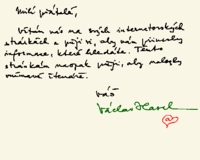 Milí přátelé,
Vítám vás na svých internetových
stránkách a přeji si, aby vám přinesly
informace, které hledáte. Těmto
stránkám naopak přeji, aby nalezly
vnímavé čtenáře.
Váš
Václav Havel
@